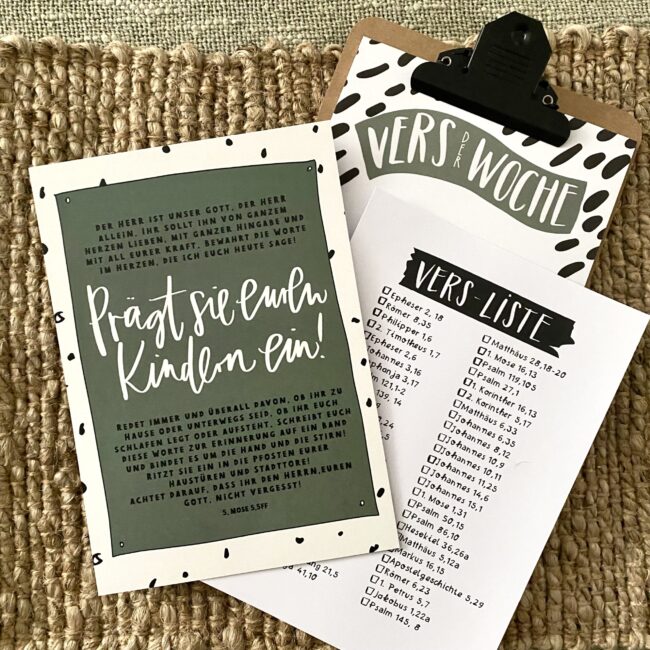 VERS DER WOCHE
DER HERR IST UNSER GOTT, DER HERR
ALLEIN. IHR SOLLT IHN VON GANZEM
HERZEN LIEBEN, MIT GANZER HINGABE UND
MIT ALL EURER KRAFT. BEWAHRT DIE WORTE
IM HERZEN, DIE ICH EUCH HEUTE SAGE!
Prägt sie euren
Kindern ein!
REDET IMMER UND ÜBERALL DAVON, OB IHR ZU
HAUSE ODER UNTERWEGS SEID, OB IHR EUCH
SCHLAFEN LEGT ODER AUFSTEHT. SCHREIBT EUCH
DIESE WORTE ZUR ERINNERUNG AUF EIN BAND
UND BINDET ES UM DIE HAND UND DIE STIRN!
RITZT SIE EIN IN DIE PFOSTEN EURER
HAUSTÜREN UND STADTTORE!
ACHTET DARAUF, DASS IHR DEN HERRN,EUREN
GOTT, NICHT VERGESST!
5. MOSE 5,5FF
VERS-LISTE
Epheser 2, 18
Römer 8,35
Philipper 1,6
2. Timotheus 1,7
Epheser 2,6
Johannes 3,16
phanja 3,17
121,1-2
139, 14
,24
21,5
41,10
Matthäus 28,18-20
1. Mose 16,13
Psalm 119,105
Psalm 27,1
1. Korinther 16,13
2. Korinther 5,17
Matthäus 6,33
Johannes 6,35
Johannes 8,12
Johannes 10,9
Johannes 10,11
Johannes 11,25
Johannes 14,6
Johannes 15,1
1. Mose 1,31
Psalm 50,15
Psalm 86,10
Hesekiel 36,26a
Matthäus 5,12a
Markus 16,15
Apostelgeschichte 5,29
Römer 6,23
1. Petrus 5,7
Jakobus 1,22a
Psalm 145, 8